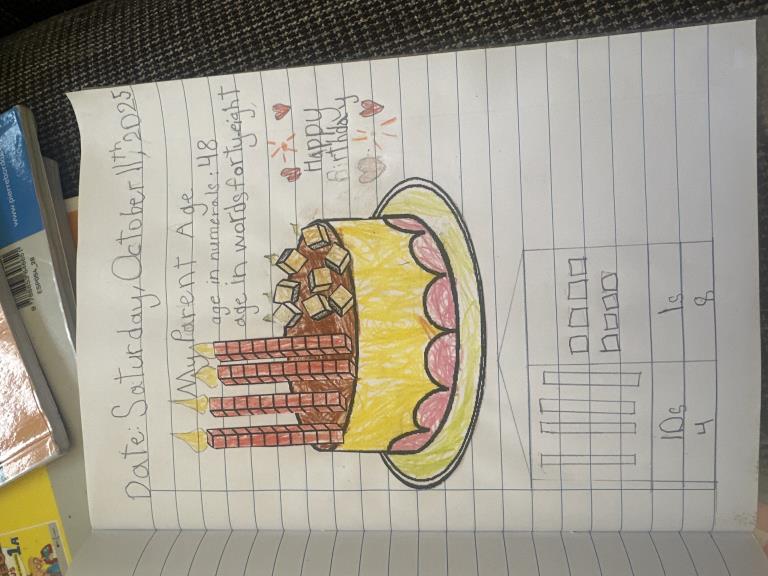 Date: Saturday, October 11th, 2025
My Parent Age
age in numerals: 48
age in words fortyeight
Happy
Birthday
10s 1s
4 8
ESPAÑA.28
1A